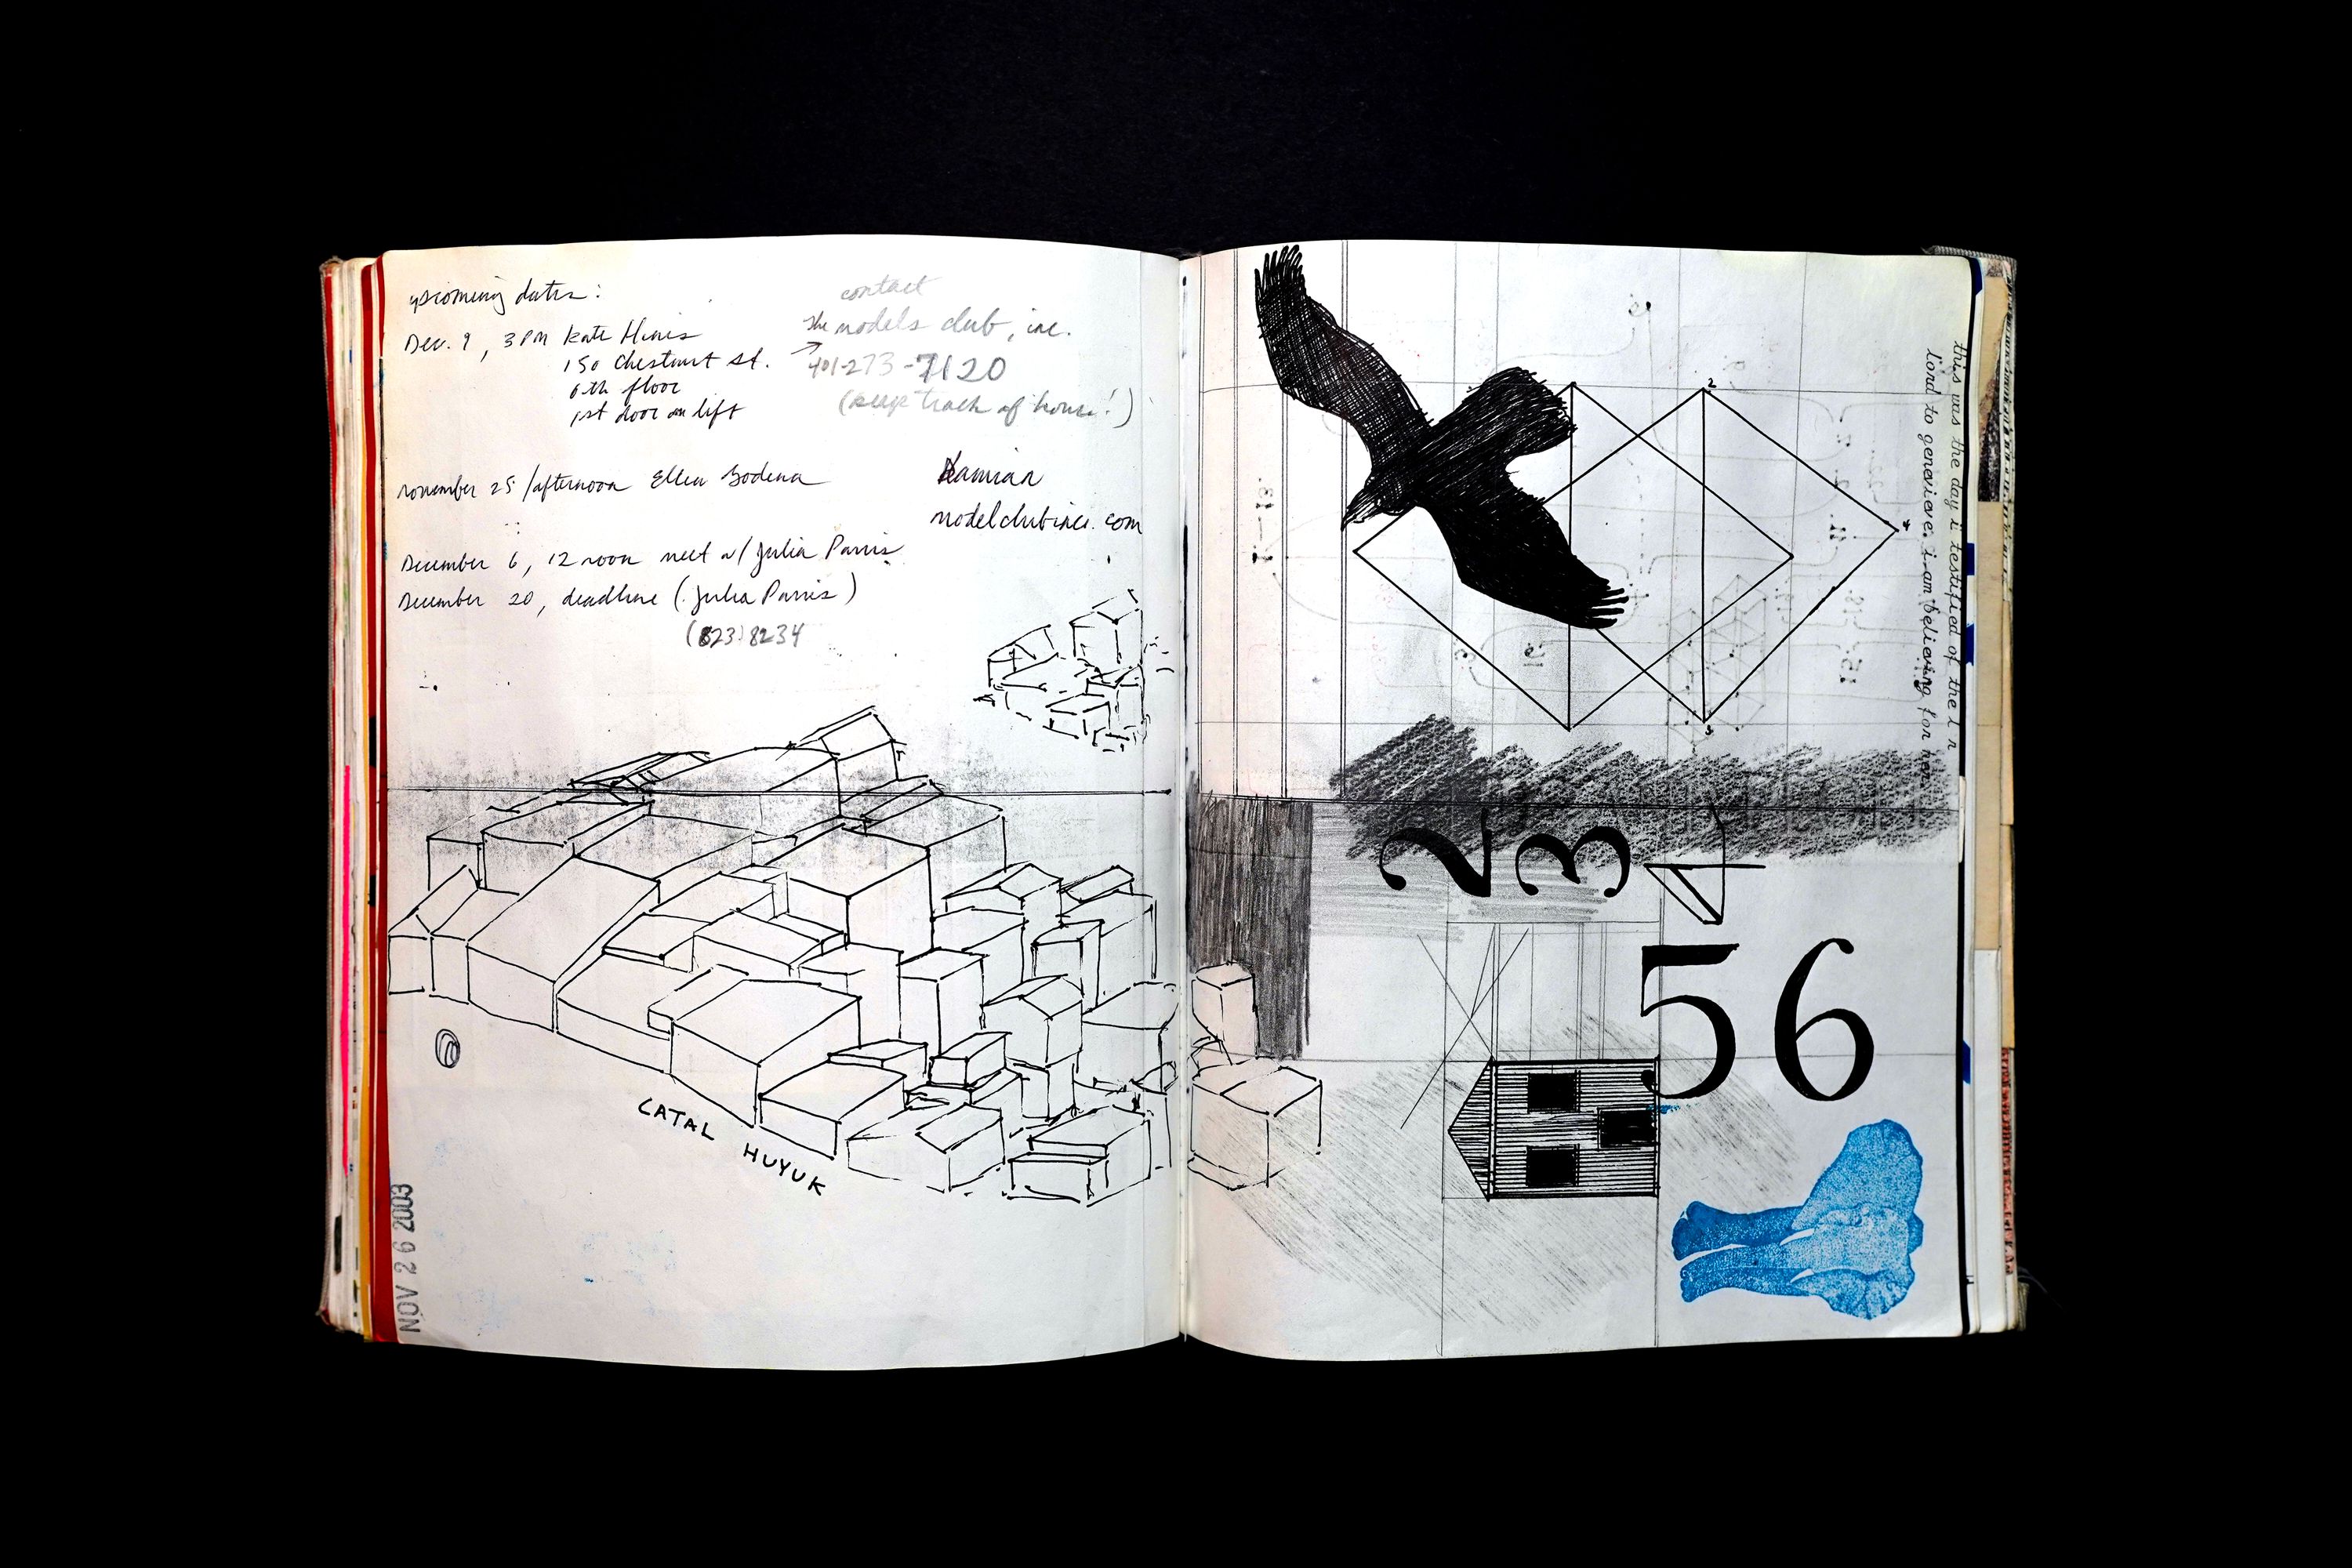 upcoming dates:
Dec. 9, 3 PM Kate
150 Chestnut St.
6th floor
1st door on lift
contact
the models club, inc.
401-273-7120
(keep track of hours!)
november 25 /afternoon Ellen Bodena
Damian
modelclubinc.com
December 6, 12 noon meet w/ Julia Parris
December 20, deadline (Julia Parris)
(823) 8234
CATAL HUYUK
NOV 26 2003
this was the day i testified of the l r
lord to genevieve. i am believing for her.
2
4
3
2 3 4
5 6